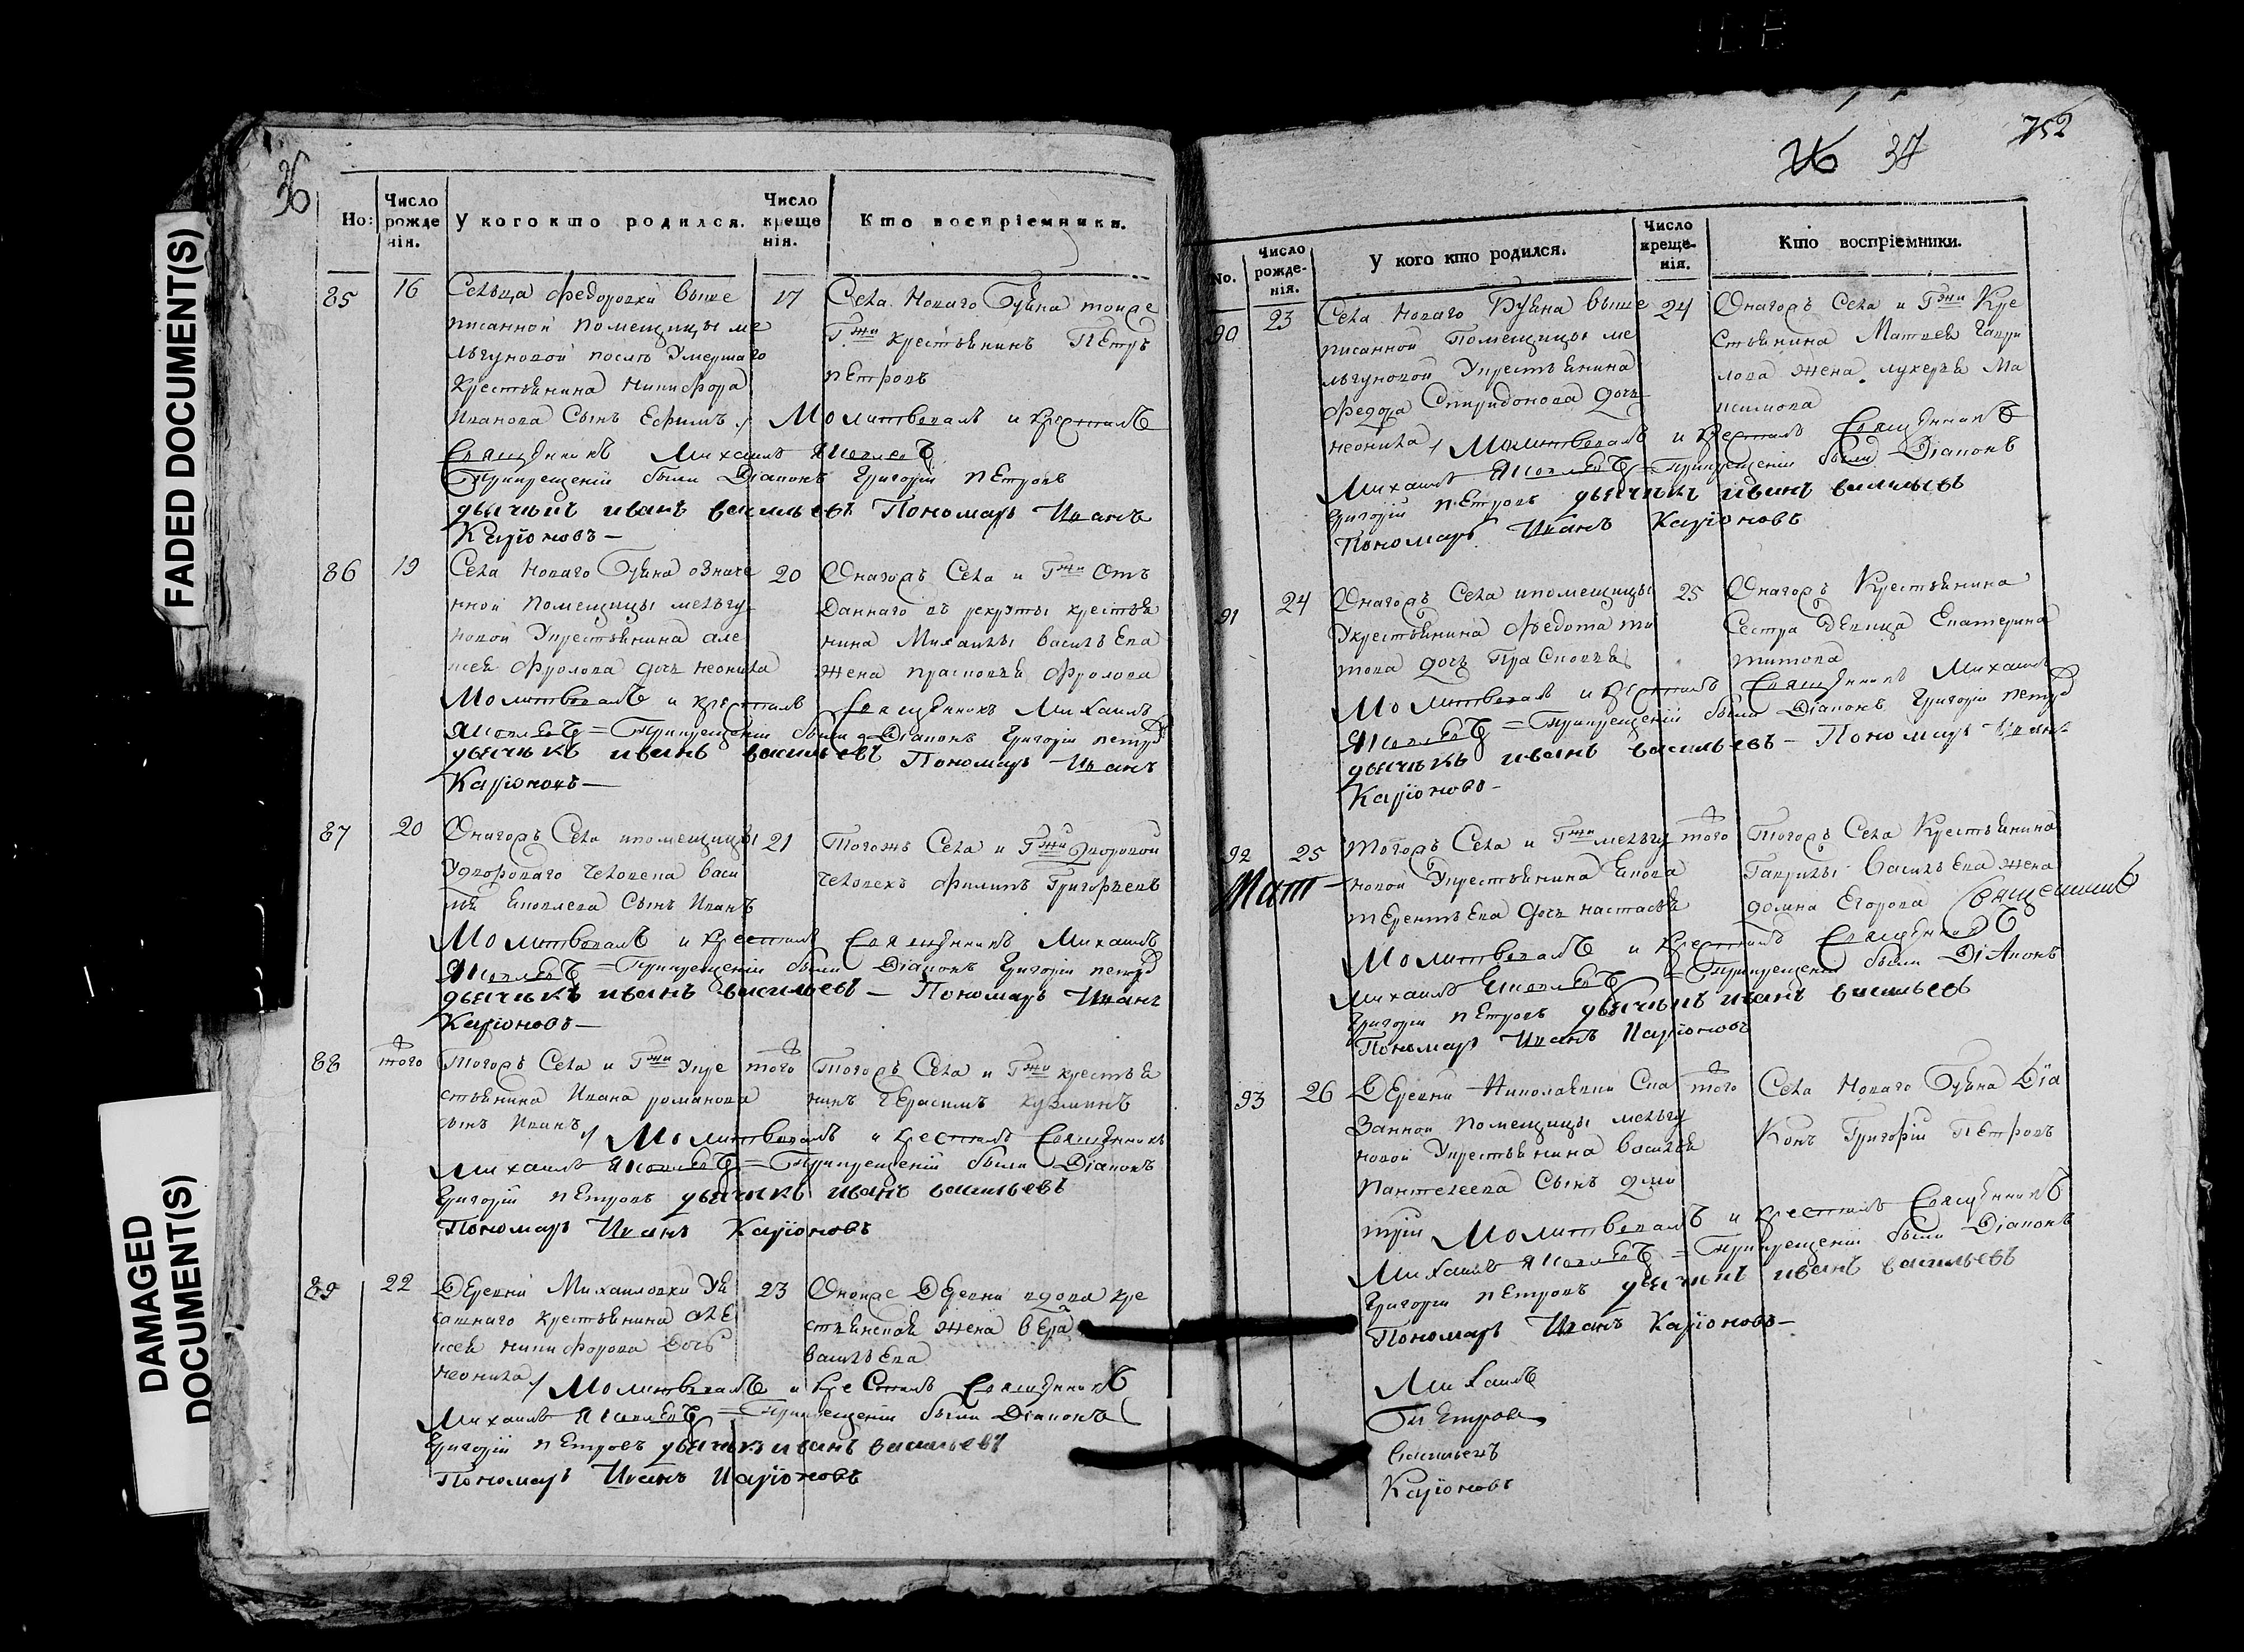 FADED DOCUMENT(S)
DAMAGED
DOCUMENT(S)
36
Но:
Число
рожде
нія.
У кого кто родился.
Число
креще
нія.
Кто воспріемники.
85
16
Сельца Федоровки выше
писанной помещицы ме
льгуновой после умершаго
крестьянина Никифора
Иванова сынъ Ефимъ
17
Села Новаго Буяна тоиже
Гжи крестьянинъ Петръ
Петровъ
Молитвовалъ и крестилъ
Священникъ Михаилъ Яковлевъ
При крещеніи были Діаконъ Григорій Петровъ
дьячикъ иванъ васильевъ Пономарь Иванъ
Каріоновъ
86
19
Села Новаго Буяна означе
нной помещицы мельгу
новой у крестьянина але
ксея Фролова дочь неонила
20
Онагожъ Села и Гжи от
даннаго въ рекруты крестья
нина Михаилы васильева
жена прасковья Фролова
Молитвовалъ и крестилъ Священникъ Михаилъ
Яковлевъ = При крещеніи были Діаконъ Григорій петровъ
дьячикъ иванъ васильевъ Пономарь Иванъ
Каріоновъ
87
20
Онагожъ Села и помещицы
у двороваго человека васи
лья яковлева сынъ Иванъ
21
Тогожъ Села и Гжи дворовой
человекъ Филипъ Григорьевъ
Молитвовалъ и крестилъ Священникъ Михаилъ
Яковлевъ = При крещеніи были Діаконъ Григорій петровъ
дьячикъ иванъ васильевъ Пономарь Иванъ
Каріоновъ
88
того
Тогожъ Села и Гжи у кре
стьянина Ивана романова
сынъ Иванъ
того
Тогожъ Села и Гжи крестья
нинъ Герасимъ кузминъ
Молитвовалъ и крестилъ Священникъ
Михаилъ Яковлевъ = При крещеніи были Діаконъ
Григорій Петровъ дьячикъ иванъ васильевъ
Пономарь Иванъ Каріоновъ
89
22
Деревни Михаиловки у
крестьянина але
ксея никифорова дочь
неонила
23
Оноиже Деревни вдова кре
стьянская жена вера
васильева
Молитвовалъ и крестилъ Священникъ
Михаилъ Яковлевъ = При крещеніи были Діаконъ
Григорій Петровъ дьячикъ иванъ васильевъ
Пономарь Иванъ Каріоновъ
37
752
No.
Число
рожде-
нія.
У кого кто родился.
Число
креще-
нія.
Кто воспріемники.
90
23
Села Новаго Буяна выше
писанной Помещицы ме
льгуновой у крестьянина
Федора Спиридонова дочь
неонила
24
Онагожъ Села и Гжи Кре
стьянина Матвея Гаври
лова жена лукерья Ма
ксимова
Молитвовалъ и крестилъ Священникъ
Михаилъ Яковлевъ = При крещеніи были Діаконъ
Григорій Петровъ дьячикъ иванъ васильевъ
Пономарь Иванъ Каріоновъ
91
24
Онагожъ Села и помещицы
у крестьянина Федота ти
това дочь Прасковья
25
Онагожъ Крестьянина
Сестра девица Екатерина
титова
Молитвовалъ и крестилъ Священникъ Михаилъ
Яковлевъ = При крещеніи были Діаконъ Григорій петровъ
дьячикъ иванъ васильевъ Пономарь Иванъ
Каріоновъ
92
25
Тогожъ Села и Гжи мельгу
новой у крестьянина Якова
терентьева дочь настасья
того
Тогожъ Села Крестьянина
Гаврилы Васильева жена
домна Егорова
Молитвовалъ и крестилъ Священникъ
Михаилъ Яковлевъ = При крещеніи были Діаконъ
Григорій Петровъ дьячикъ иванъ васильевъ
Пономарь Иванъ Каріоновъ
93
26
Деревни Николаевки ска
занной помещицы мельгу
новой у крестьянина василья
пантелеева сынъ дми
трій
того
Села Новаго Буяна Діа
конъ Григорій Петровъ
Молитвовалъ и крестилъ Священникъ
Михаилъ Яковлевъ = При крещеніи были Діаконъ
Григорій Петровъ дьячикъ иванъ васильевъ
Пономарь Иванъ Каріоновъ
Михаилъ
Петровъ
Васильевъ
Каріоновъ